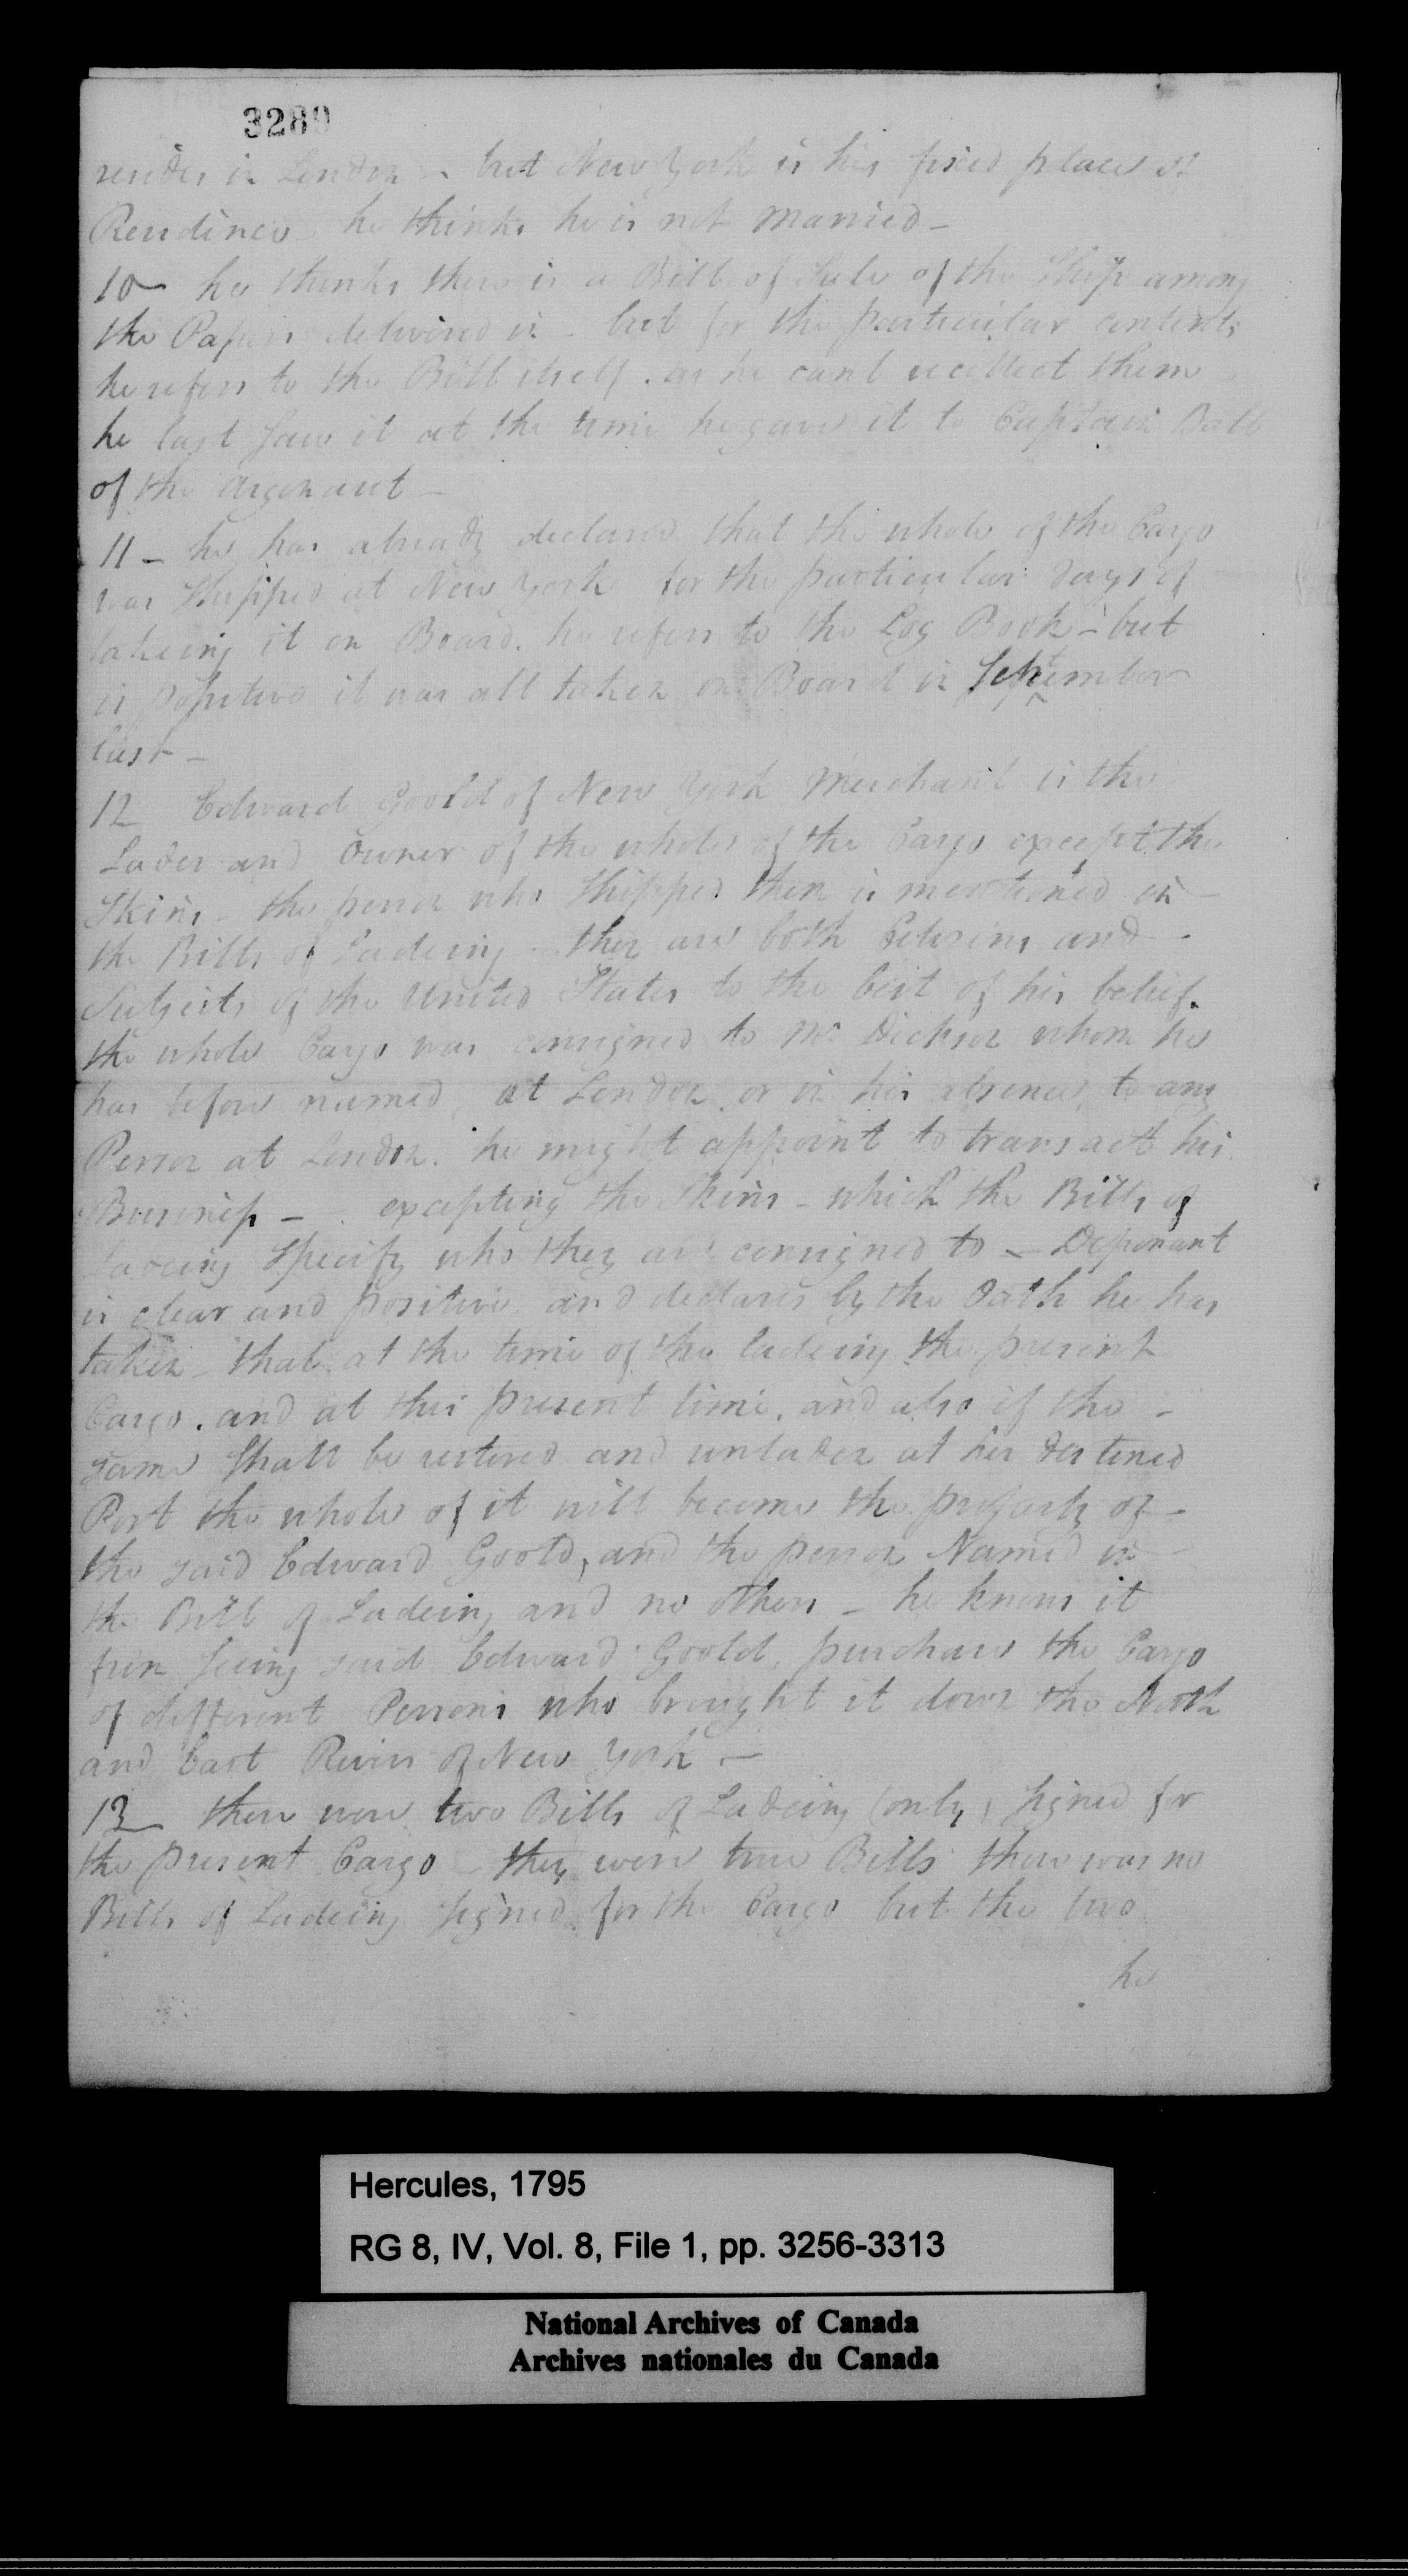 3289
resides in London - but New York is his fixed place of
Residence he thinks he is not Married -
10 he thinks there is a Bill of Sale of the Ship among
the Papers delivered in - but for the particular contents
he refers to the Bill itself. as he cant recollect them
he last saw it at the time he gave it to Captain Ball
of the Argonaut -
11 - he has already declared that the whole of the Cargo
was Shipped at New York for the particular days of
takeing it on Board. he refers to the Log Book - but
is positive it was all taken on Board in September
last -
12 Edward Goold of New York Merchant is the
Lader and Owner of the whole of the Cargo except the
Skins - the person who Shipped them is mentioned in -
the Bills of Ladeing - they are both Citizens and -
Subjects of the United States to the best of his belief.
the whole Cargo was consigned to Mr Dickson whom he
has before named, at London, or in his absence to any
Person at London. he might appoint to transact his
Business - - excepting the Skins - which the Bills of
Ladeing Specify who they are consigned to - Deponant
is clear and positive and declares by the Oath he has
taken - that at the time of the ladeing the present
Cargo. and at this present time. and also if the -
same Shall be restored and unladen at her destined
Port the whole of it will become the property of -
the said Edward Goold, and the person Named in -
the Bill of Ladeing and no others - he knows it
from seeing said Edward Goold, purchase the Cargo
of different Persons who brought it down the North
and East Rivers of New York -
13 there were two Bills of Ladeing (only) signed for
the present Cargo - they were true Bills there was no
Bills of Ladeing signed for the Cargo but the two
he
Hercules, 1795
RG 8, IV, Vol. 8, File 1, pp. 3256-3313
National Archives of Canada
Archives nationales du Canada